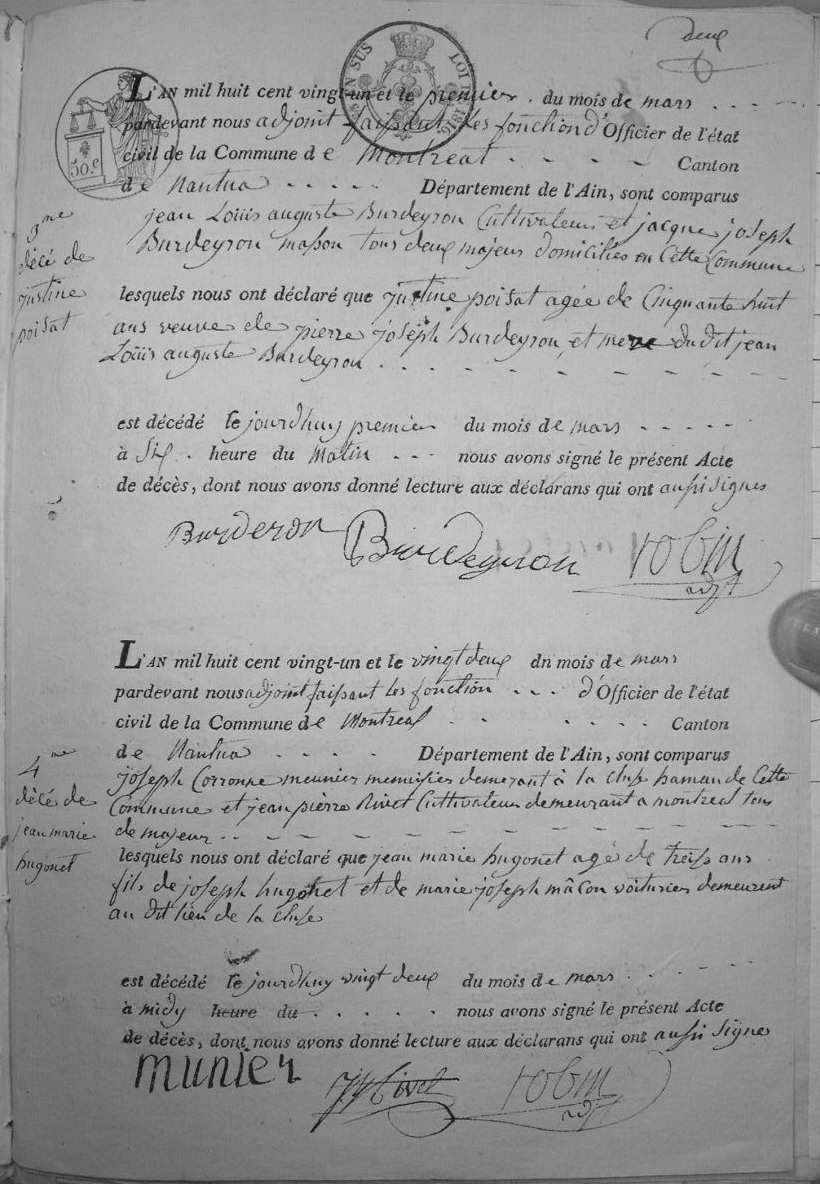 deux
L'AN mil huit cent vingt-un et le premier . du mois de mars . - - -
pardevant nous adjoint faisant les fonction d'Officier de l'état
civil de la Commune de Montreal - - - - - Canton
de Nantua - - - - - Département de l'Ain, sont comparus
jean Louis auguste Burdeyron Cultivateur et jacque joseph
Burdeyron masson tous deux majeur domiciliés en Cette Commune
3me
décé de
justine
poisat
lesquels nous ont déclaré que justine poisat agée de Cinquante huit
ans veuve de pierre joseph Burdeyron, et mere du dit jean
Louis auguste Burdeyron . . - - - - - - - - -
est décédé le jourdhuy premier du mois de mars - - - - -
à Six . heure du Matin - - - nous avons signé le présent Acte
de décès, dont nous avons donné lecture aux déclarans qui ont aussi signes
Burderon Burdeyron robin
adjt
L'AN mil huit cent vingt-un et le vingt deux dn mois de mars
pardevant nous adjoint faisant les fonction - - - d'Officier de l'état
civil de la Commune de Montreal - - - - - - Canton
de Nantua - - - - Département de l'Ain, sont comparus
joseph Corronne meunier demeurant à la Cluse hamau de Cette
Commune et jean pierre Rivet Cultivateur demeurant a montreal tous
de majeur - - - - - - - - - - - -
4me
décé de
jean marie
hugonet
lesquels nous ont déclaré que jean marie hugonet agé de treise ans
fils de joseph hugonet et de marie joseph mâcon voiturier demeurent
au dit lieu de la Cluse
est décédé le jourdhuy vingt deux du mois de mars . - - -
à midy heure du . . . . . nous avons signé le présent Acte
de décès, dont nous avons donné lecture aux déclarans qui ont aussi signe
munier jp Rivet robin
adjt
50.c
LOI